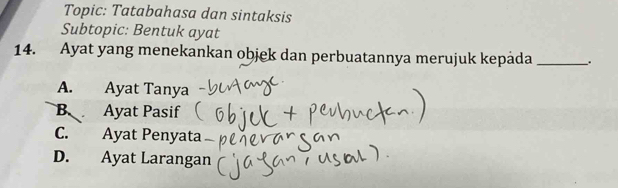 Topic: Tatabahasa dan sintaksis
Subtopic: Bentuk ayat
14. Ayat yang menekankan objek dan perbuatannya merujuk kepada ______.
A. Ayat Tanya - bertanya.
B. Ayat Pasif (objek + perbuatan.)
C. Ayat Penyata - penerangan
D. Ayat Larangan (jangan, usah).